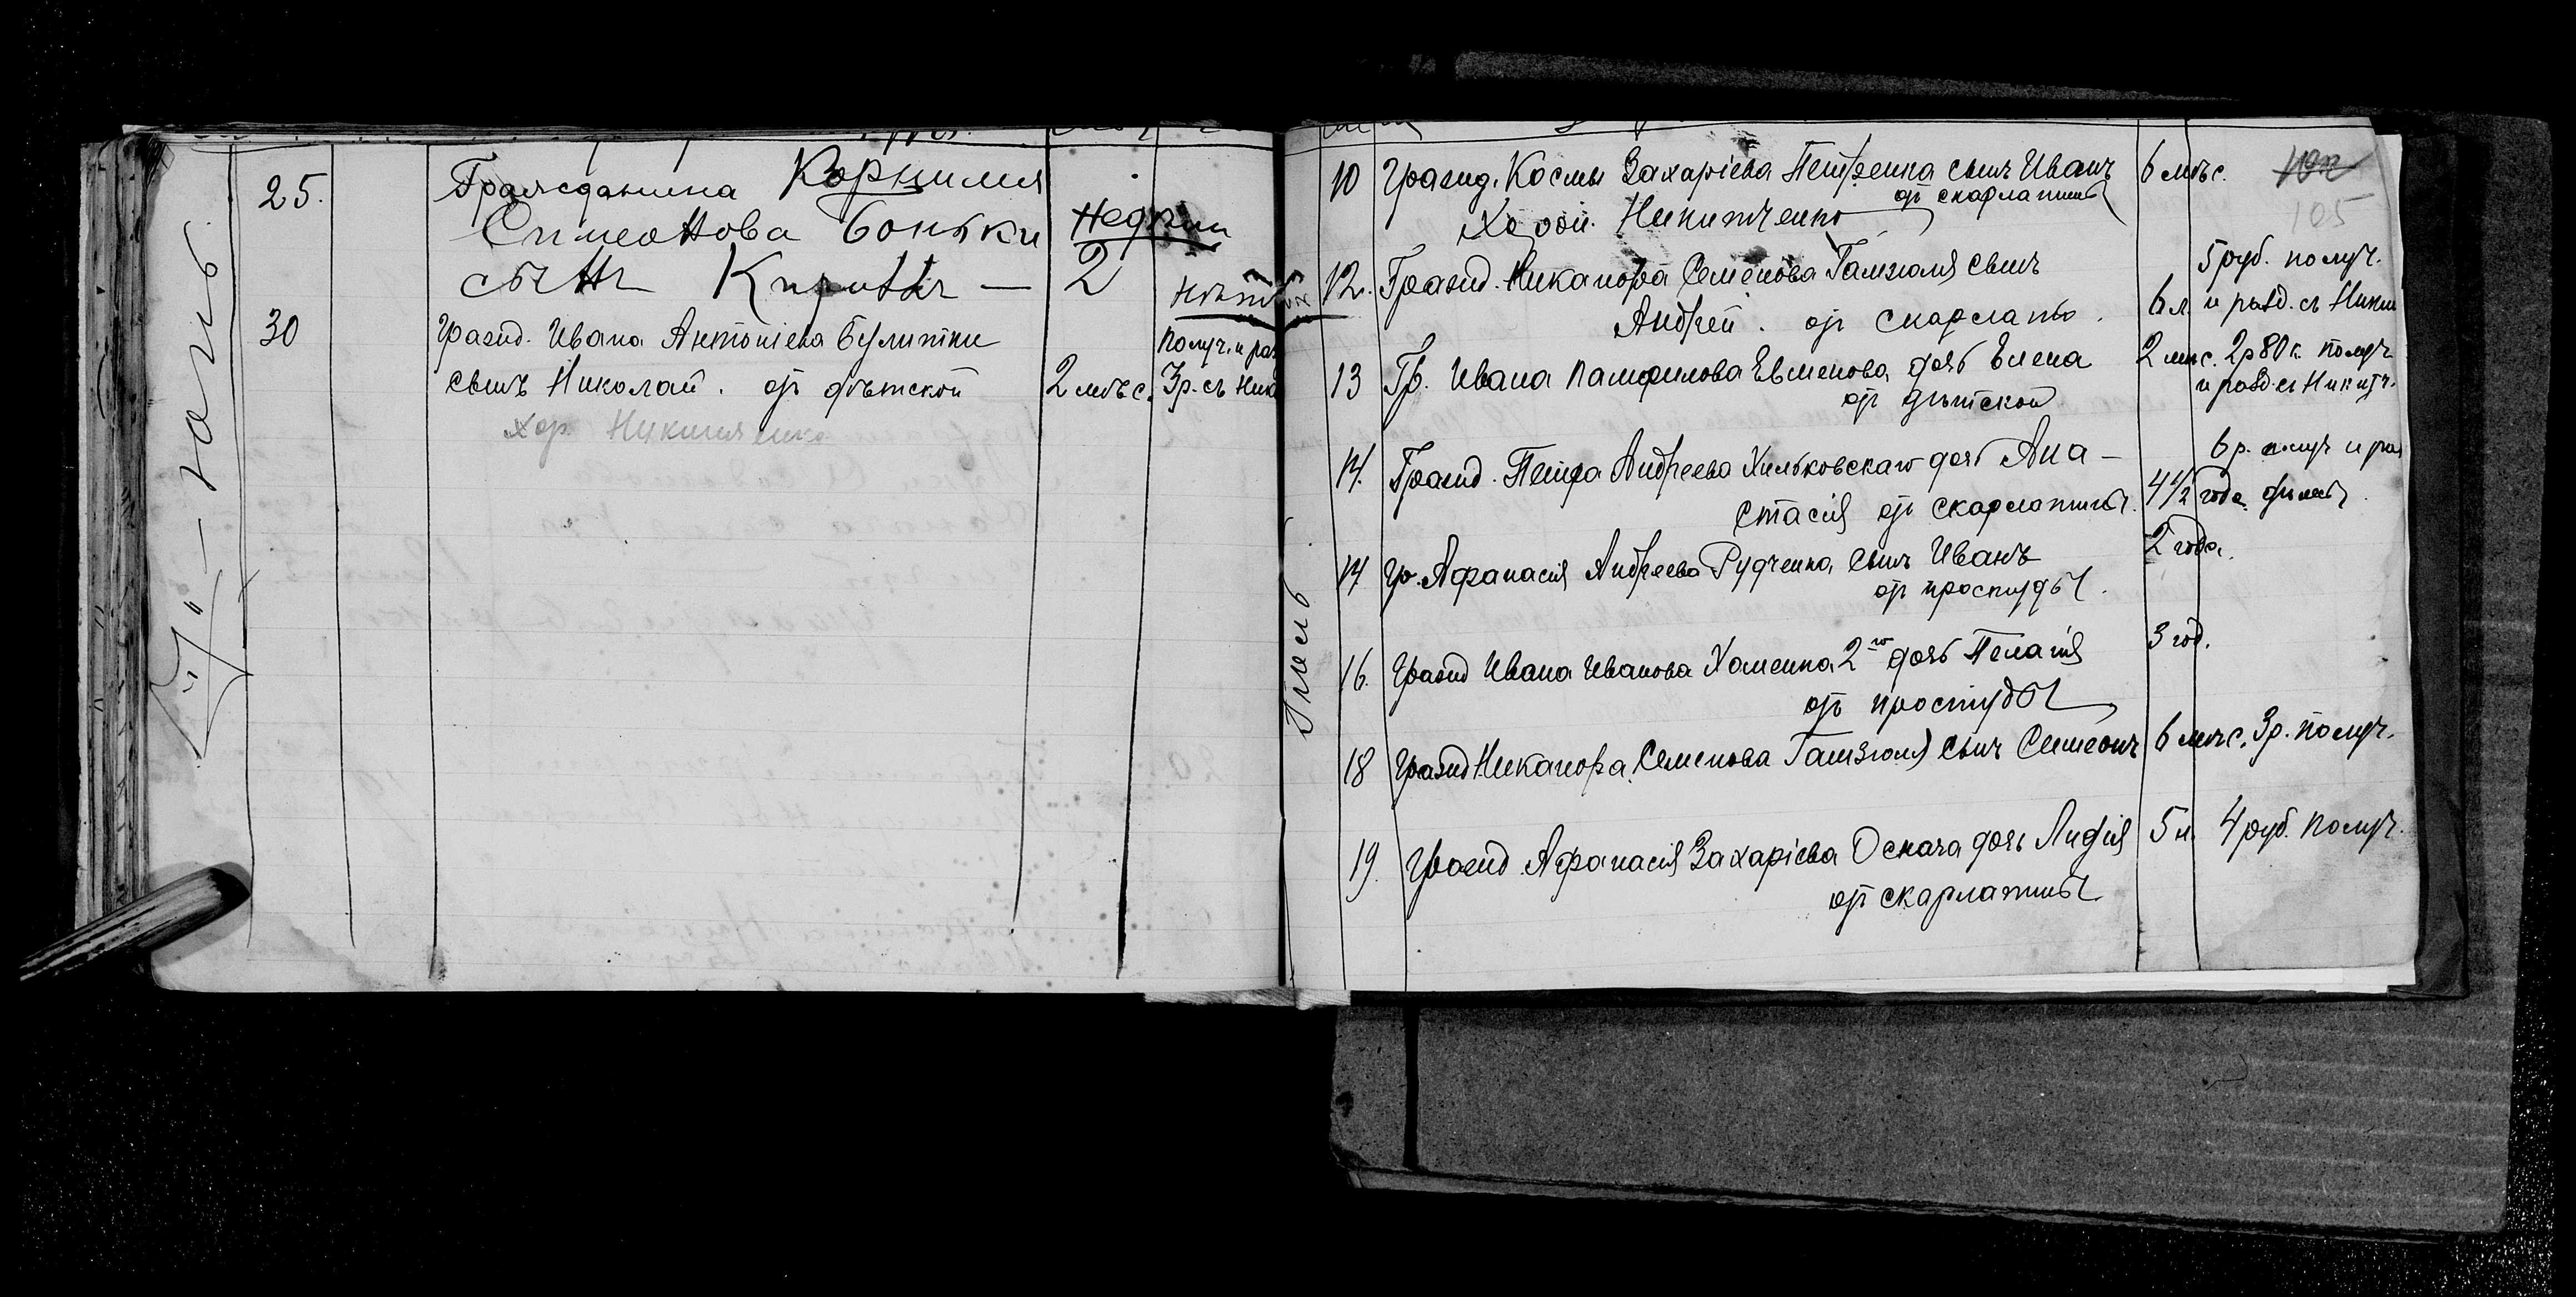 25. Гражданина Корнилия
Симеонова Боньки Недѣли
сынъ Кирилъ — 2 нѣтъ
30 Гражд. Ивана Антоніева Булитки получ. и раз
сынъ Николай. отъ дѣтской 2 мѣс. 3 р. съ Ник
хор. Никитченко
10 Гражд. Космы Захаріева Петренка сынъ Иванъ 6 мѣс.
отъ скарлатины
105
Хорон. Никитченко
12. Гражд. Никанора Семенова Гамзюля сынъ 5 руб. получ.
Андрей. отъ скарлаты. 6 л. и разд. съ Ники
13 Гр. Ивана Памфилова Евменова дочь Елена 2 мѣс. 2 р 80 к. получ
отъ дѣтской и разд. съ Никитч.
14. Гражд. Петра Андреева Хильковскаго дочь Ана- 6 р. получ и раз
стасія отъ скарлатины. 4 1/2 года
14 Гр. Афанасія Андреева Рудченка сынъ Иванъ 2 года.
отъ простуды.
16. Гражд Ивана Иванова Хоменка 2го дочь Пелагія 3 год.
отъ простуды
18 Гражд Никанора Семенова Гамзюля сынъ Симеонъ 6 мѣс. 3 р. получ.
19. Гражд. Афанасія Захаріева Оскача дочь Лидія 5 л. 4 руб. получ.
отъ скарлатины